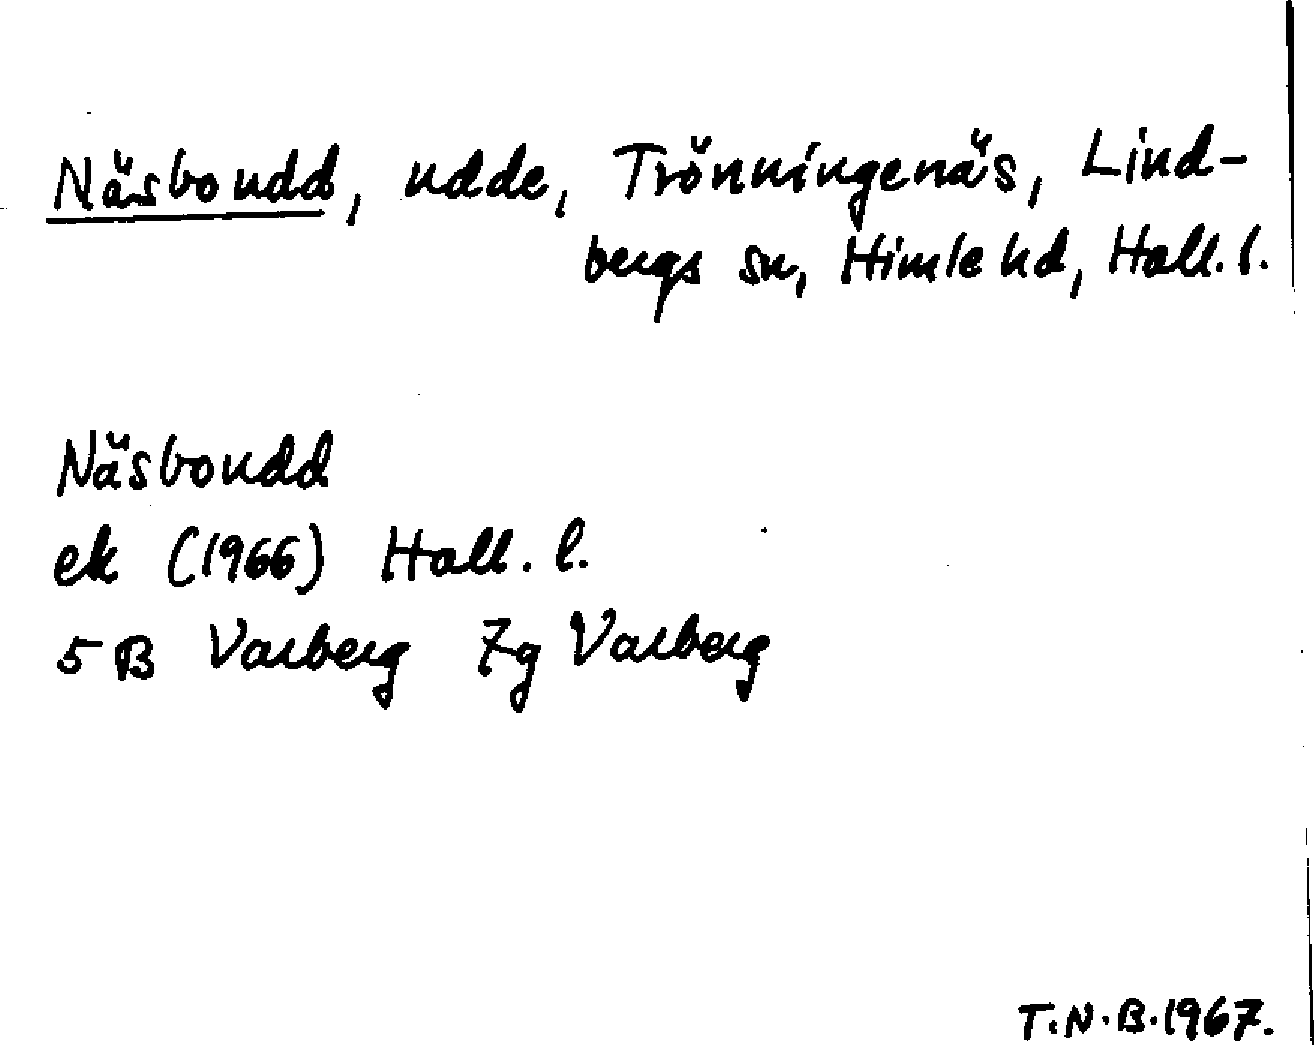 Näsboudd, udde, Trönningenäs, Lind-
bergs sn, Himle hd, Hall. l.
Näsboudd
ek (1966) Hall. l.
5 B Varberg 7g Varberg
T.N.B. 1967.